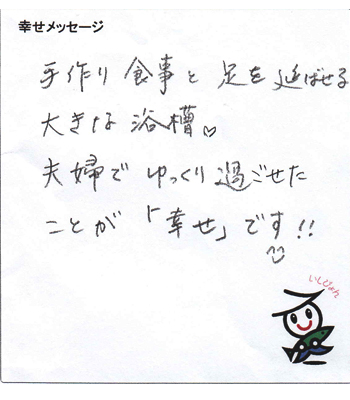 幸せメッセージ
手作り食事と足を延ばせる
大きな浴槽♡
夫婦でゆっくり過ごせた
ことが「幸せ」です!!
いしぴょん